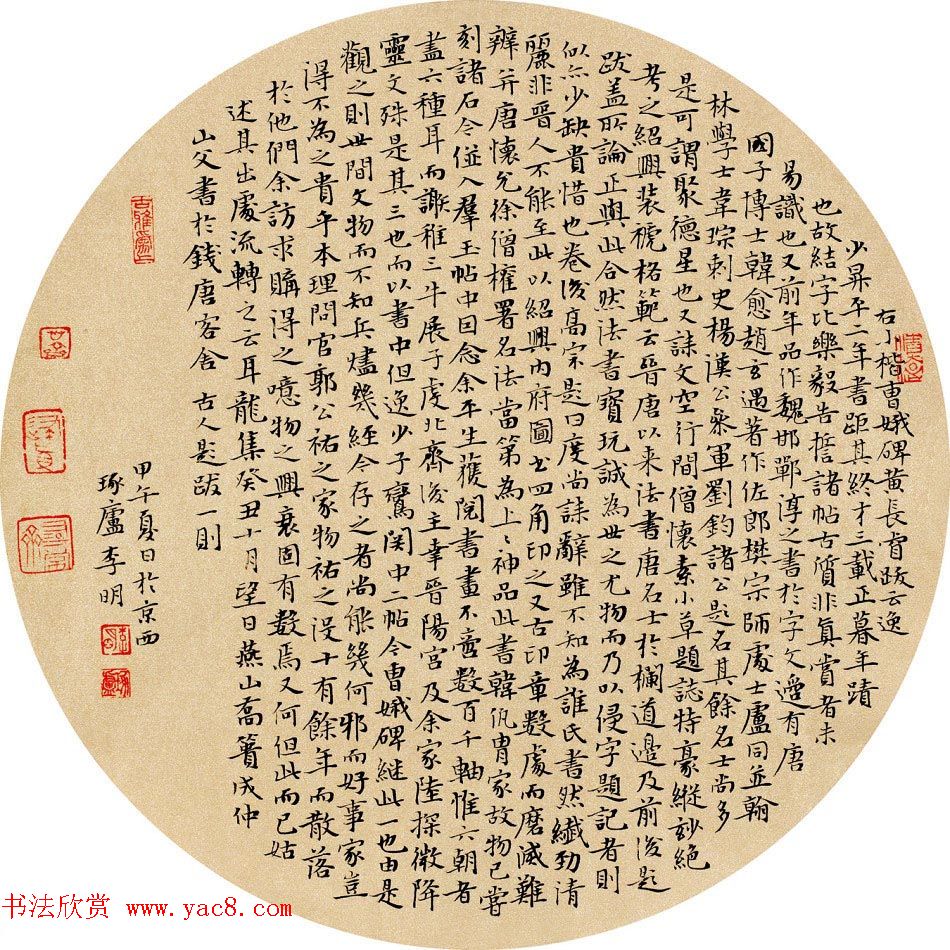 右小楷曹娥碑黄長睿跋云逸
少昇平二年書距其終才三載正暮年蹟
也故結字比樂毅告誓諸帖古質非真賞者未
易識也又前年品作魏邯鄲淳之書於字文邊有唐
國子博士韓愈趙玄遇著作佐郎樊宗師處士盧同並翰
林學士韋琮刺史楊漢公參軍劉鈞諸公題名其餘名士尚多
是可謂聚德星也又誄文空行間僧懷素小草題誌特豪縱妙絶
考之紹興装褫格範云晉唐以来法書唐名士於欄道邉及前後題
跋盖所論正與此合然法書寶玩誠為世之尤物而乃以侵字題記者則
似亦少缺貴惜也卷後高宗題曰度尚誄辭雖不知為誰氏書然纎勁清
麗非晉人不能至此以紹興内府圖書四角印之又古印章數處而磨滅難
辨并唐懷充徐僧權署名法當第為上上神品此書韓侂胄家故物已嘗
刻諸石令倂入羣玉帖中因念余平生獲閱書畫不啻数百千軸惟六朝者
盖六種耳而謝稚三牛展子虔北齊後主幸晉陽宮及余家陸探微降
靈文殊是其三也而以書中但逸少子鸞闗中二帖今曹娥碑継此一也由是
觀之則世間文物而不知兵燼幾經今存之者尚能幾何邪而好事家豈
得不為之貴乎本理問官郭公祐之家物祐之没十有餘年而散落
於他們余訪求購得之噫物之興衰固有数焉又何但此而已姑
述其出處流轉之云耳龍集癸丑十月望日燕山喬簣成仲
山父書於錢唐客舍 古人題跋一則
甲午夏日於京西
琢廬李明
书法欣赏 www.yac8.com